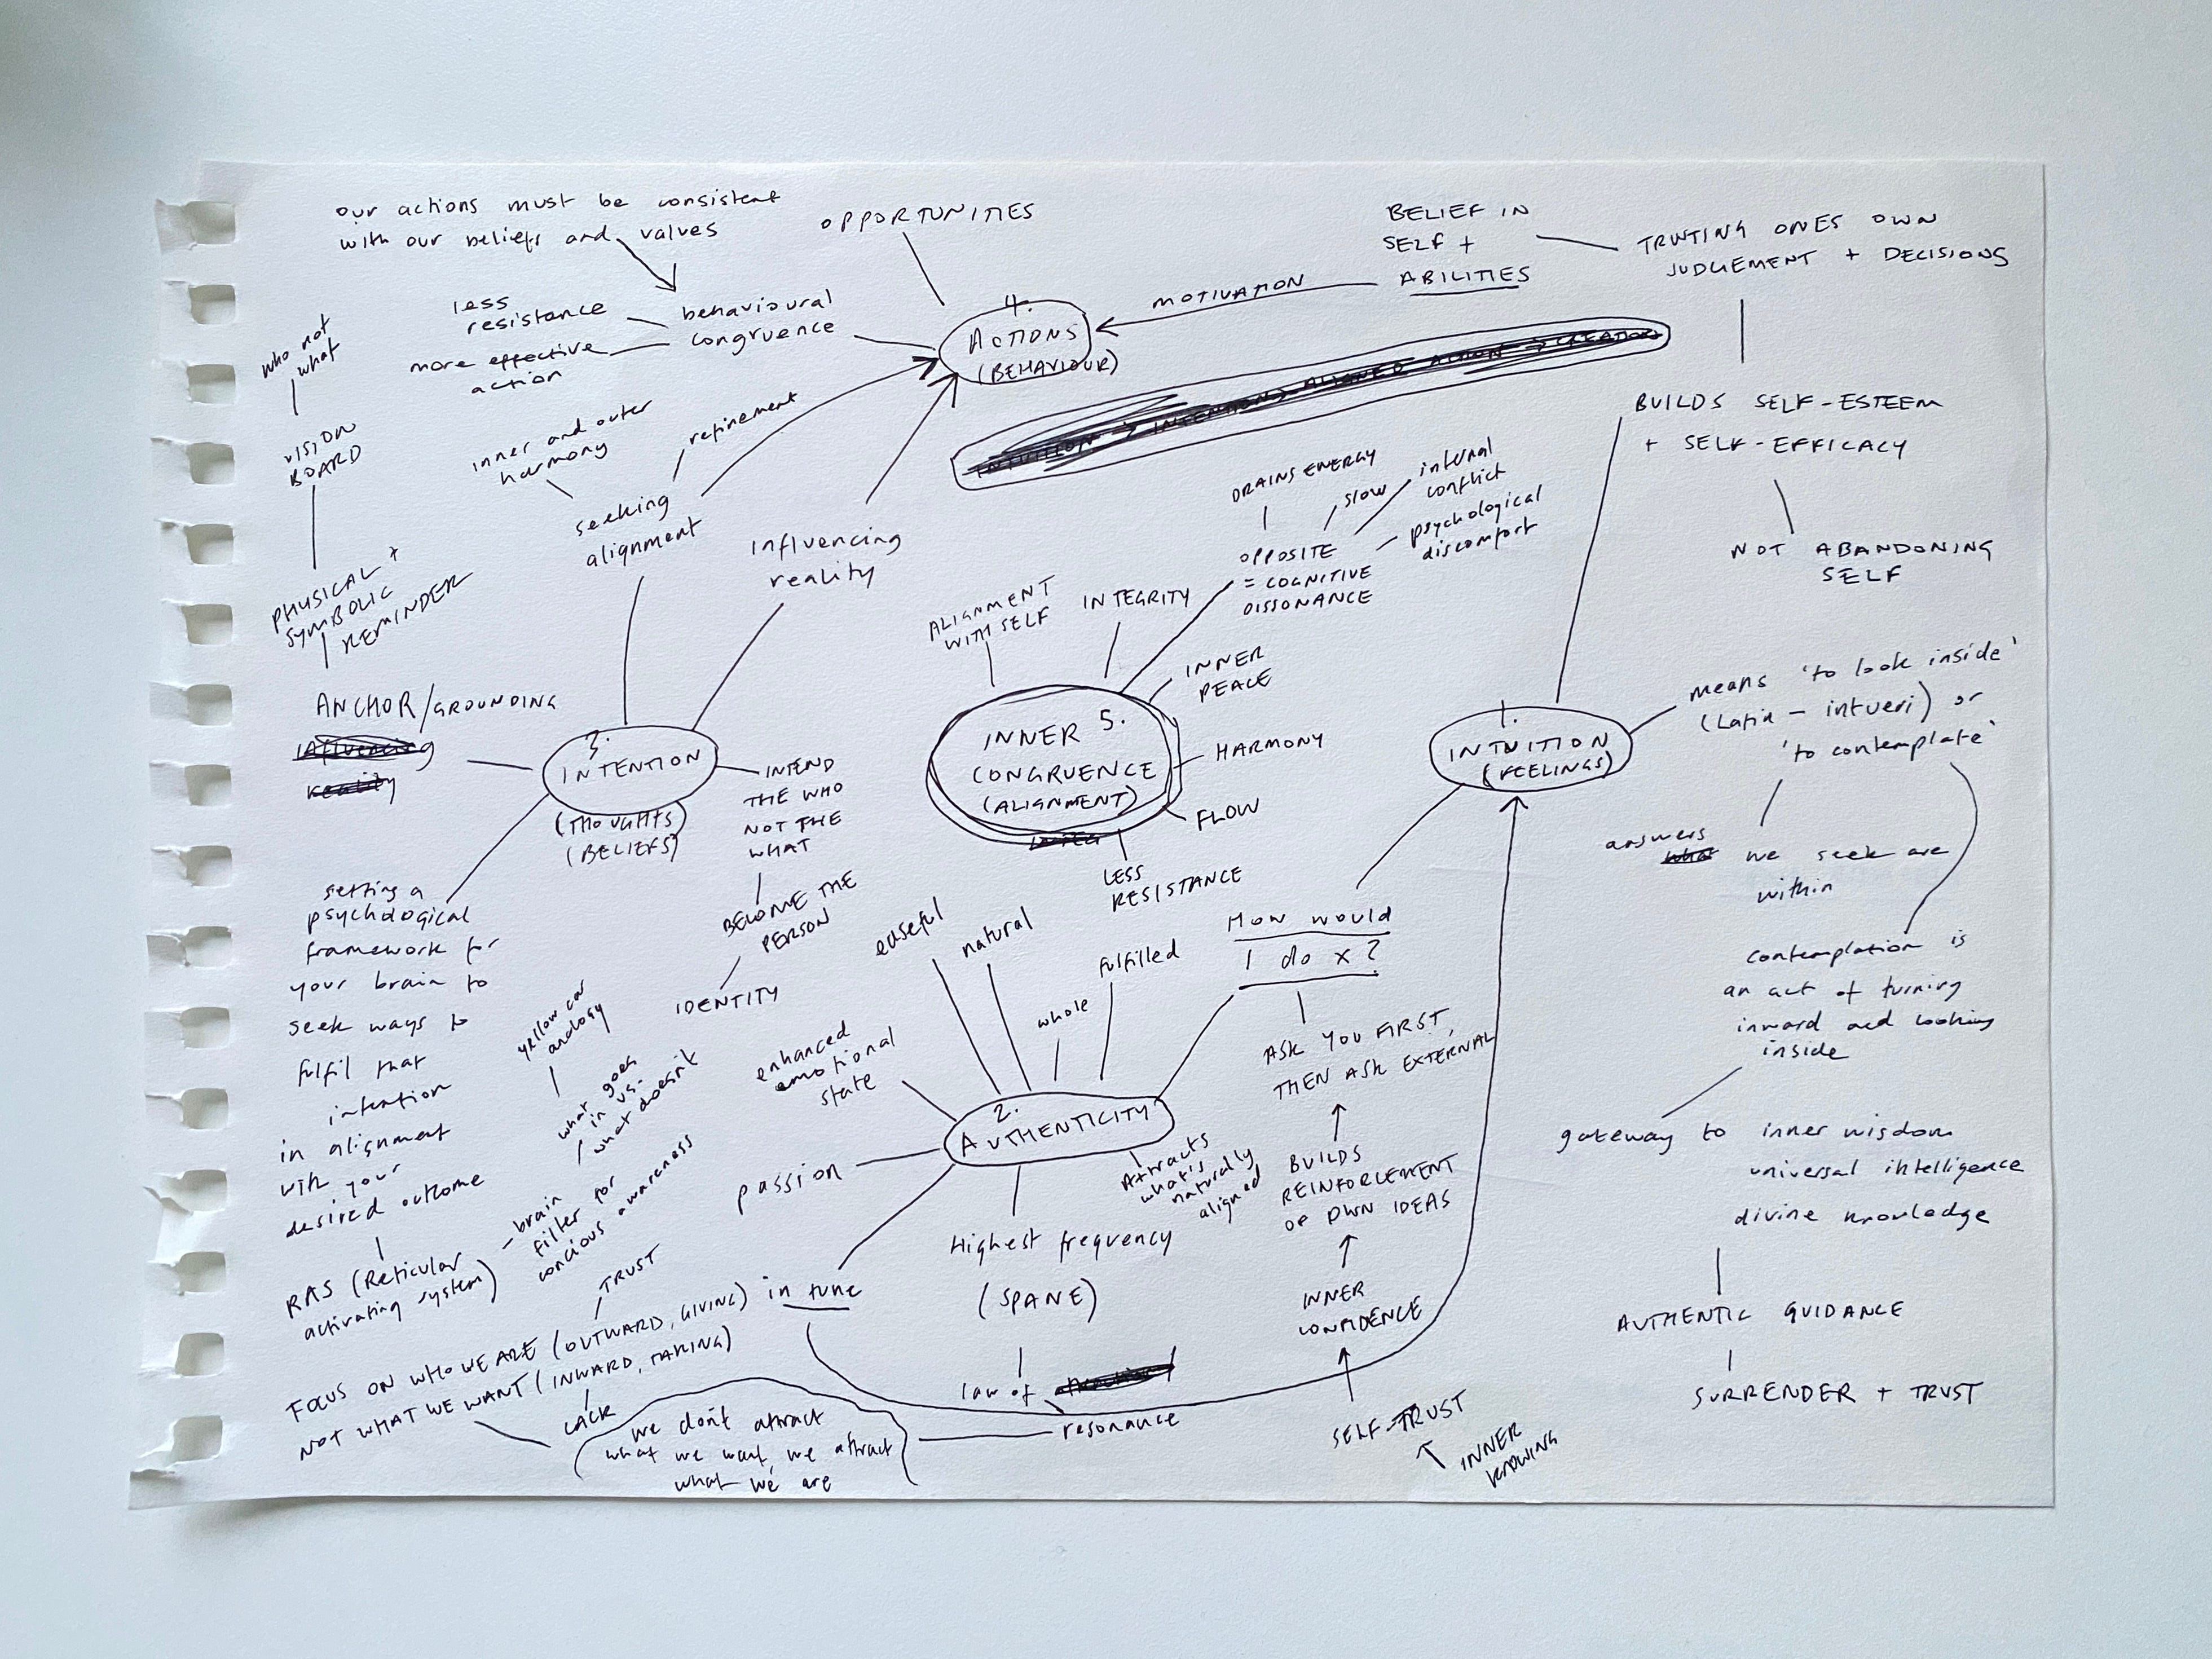 our actions must be consistent
with our beliefs and values
OPPORTUNITIES
BELIEF IN
SELF +
ABILITIES
TRUTING ONES OWN
JUDGEMENT + DECISIONS
MOTIVATION
less
resistance
more effective
action
behavioural
congruence
4.
ACTIONS
(BEHAVIOUR)
INTUITION → INTENTION → ALIGNED ACTION → CREATION
who not
what
VISION
BOARD
PHYSICAL +
SYMBOLIC
REMINDER
ANCHOR/GROUNDING
influencing
reality
inner and outer
harmony
refinement
seeking
alignment
influencing
reality
BUILDS SELF-ESTEEM
+ SELF-EFFICACY
NOT ABANDONING
SELF
DRAINS ENERGY
slow
internal
conflict
psychological
discomfort
OPPOSITE
= COGNITIVE
DISSONANCE
ALIGNMENT
WITH SELF
INTEGRITY
INNER
PEACE
HARMONY
FLOW
LESS
RESISTANCE
INNER 5.
CONGRUENCE
(ALIGNMENT)
3.
INTENTION
(THOUGHTS)
(BELIEFS)
INTEND
THE WHO
NOT THE
WHAT
BECOME THE
PERSON
IDENTITY
1.
INTUITION
(FEELINGS)
means 'to look inside'
(Latin - intueri) or
'to contemplate'
answers
what we seek are
within
contemplation is
an act of turning
inward and looking
inside
gateway to inner wisdom
universal intelligence
divine knowledge
AUTHENTIC GUIDANCE
SURRENDER + TRUST
setting a
psychological
framework for
your brain to
seek ways to
fulfil that
intention
in alignment
with your
desired outcome
RAS (Reticular
activating system)
brain
filter for
concious awareness
yellow car
analogy
what goes
in vs.
what doesn't
easeful
natural
whole
fulfilled
enhanced
emotional
state
2.
AUTHENTICITY
passion
in tune
Highest frequency
(SPANE)
Attracts
what's
naturally
aligned
How would
I do x?
ASK YOU FIRST,
THEN ASK EXTERNAL
BUILDS
REINFORCEMENT
OF OWN IDEAS
INNER
CONFIDENCE
SELF-TRUST
INNER
KNOWING
law of
resonance
TRUST
FOCUS ON WHO WE ARE (OUTWARD, GIVING)
NOT WHAT WE WANT (INWARD, TAKING)
LACK
we don't attract
what we want, we attract
what we are